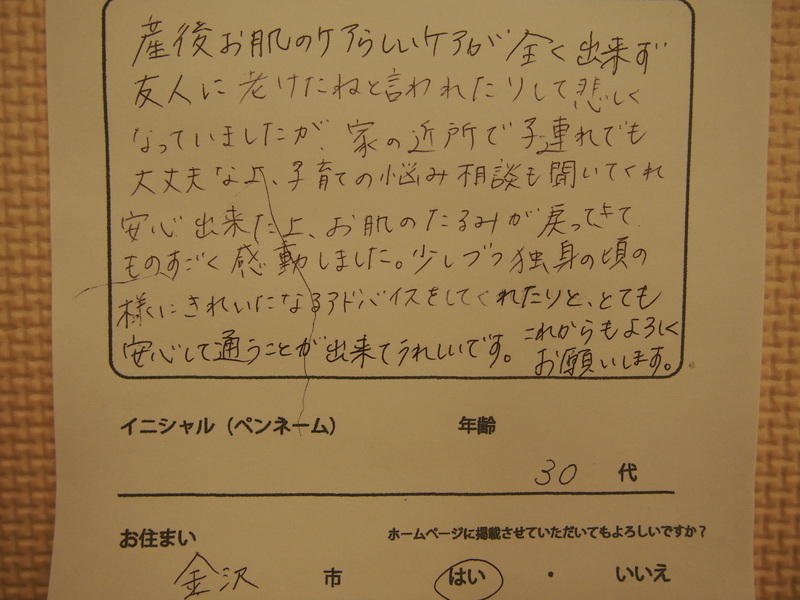 産後お肌のケアらしいケアが全く出来ず
友人に老けたねと言われたりして悲しく
なっていましたが、家の近所で子連れでも
大丈夫な上、子育ての悩み相談も聞いてくれ
安心出来た上、お肌のたるみが戻ってきて
ものすごく感動しました。少しづつ独身の頃の
様にきれいになるアドバイスをしてくれたりと、とても
安心して通うことが出来てうれしいです。これからもよろしく
お願いします。
イニシャル（ペンネーム） 年齢
30 代
お住まい ホームページに掲載させていただいてもよろしいですか？
金沢 市 はい ・ いいえ